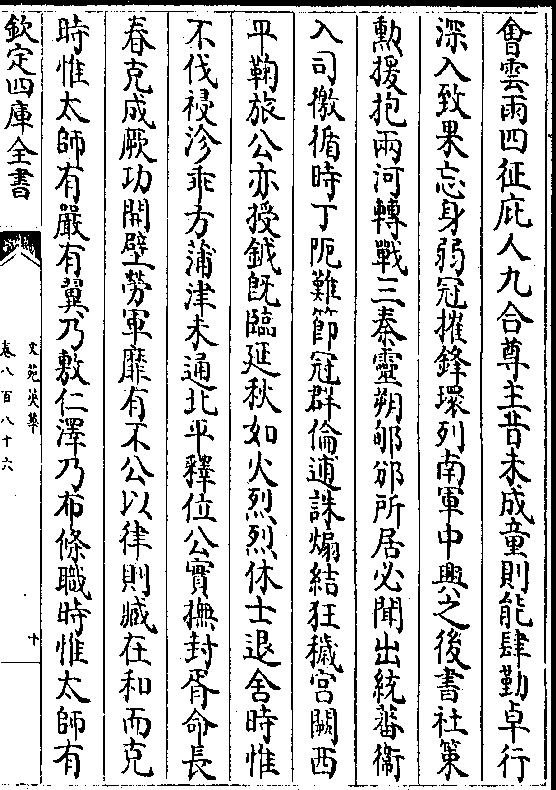 會雲雨四征庇人九合尊主昔未成童則能肆勤卓行
深入致果忘身弱冠摧鋒環列南軍中興之後書社策
勲援抱兩河轉戰三秦靈朔邠郊所居必聞出統畨衞
入司徼循時丁阨難節冠群倫逋誅煽結狂穢宫闕西
平鞠旅公亦授鉞既臨延秋如火烈烈休士退舍時惟
不伐祲沴乖方蒲津未通北平釋位公實撫封胥命長
春克成厥功開壁勞軍靡有不公以律則臧在和而克
時惟太師有嚴有翼乃敷仁澤乃布條職時惟太師有
欽定四庫全書
文苑英華
卷八百八十六
十